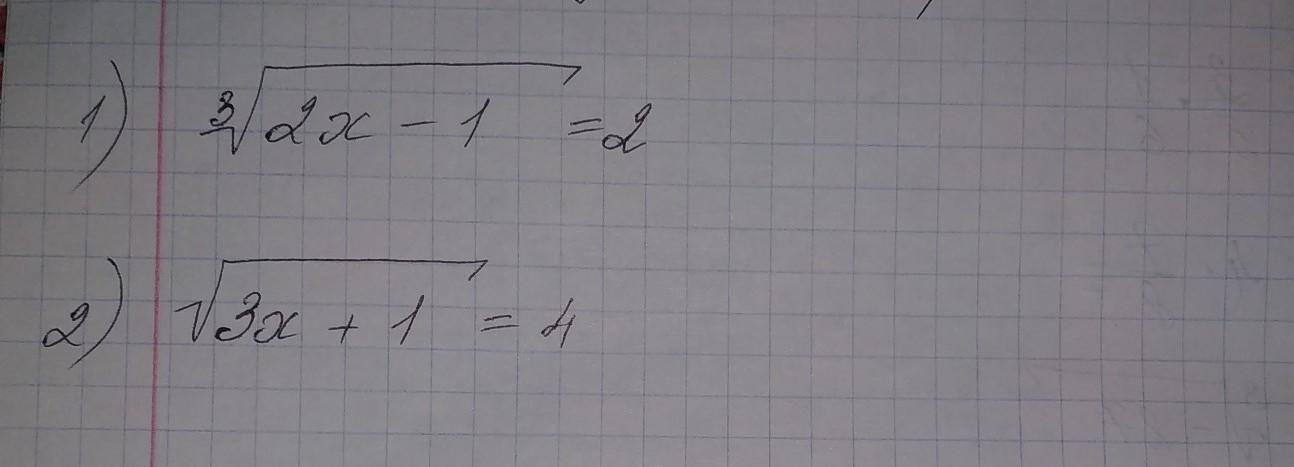 1) ∛(2x - 1) = 2
2) √(3x + 1) = 4